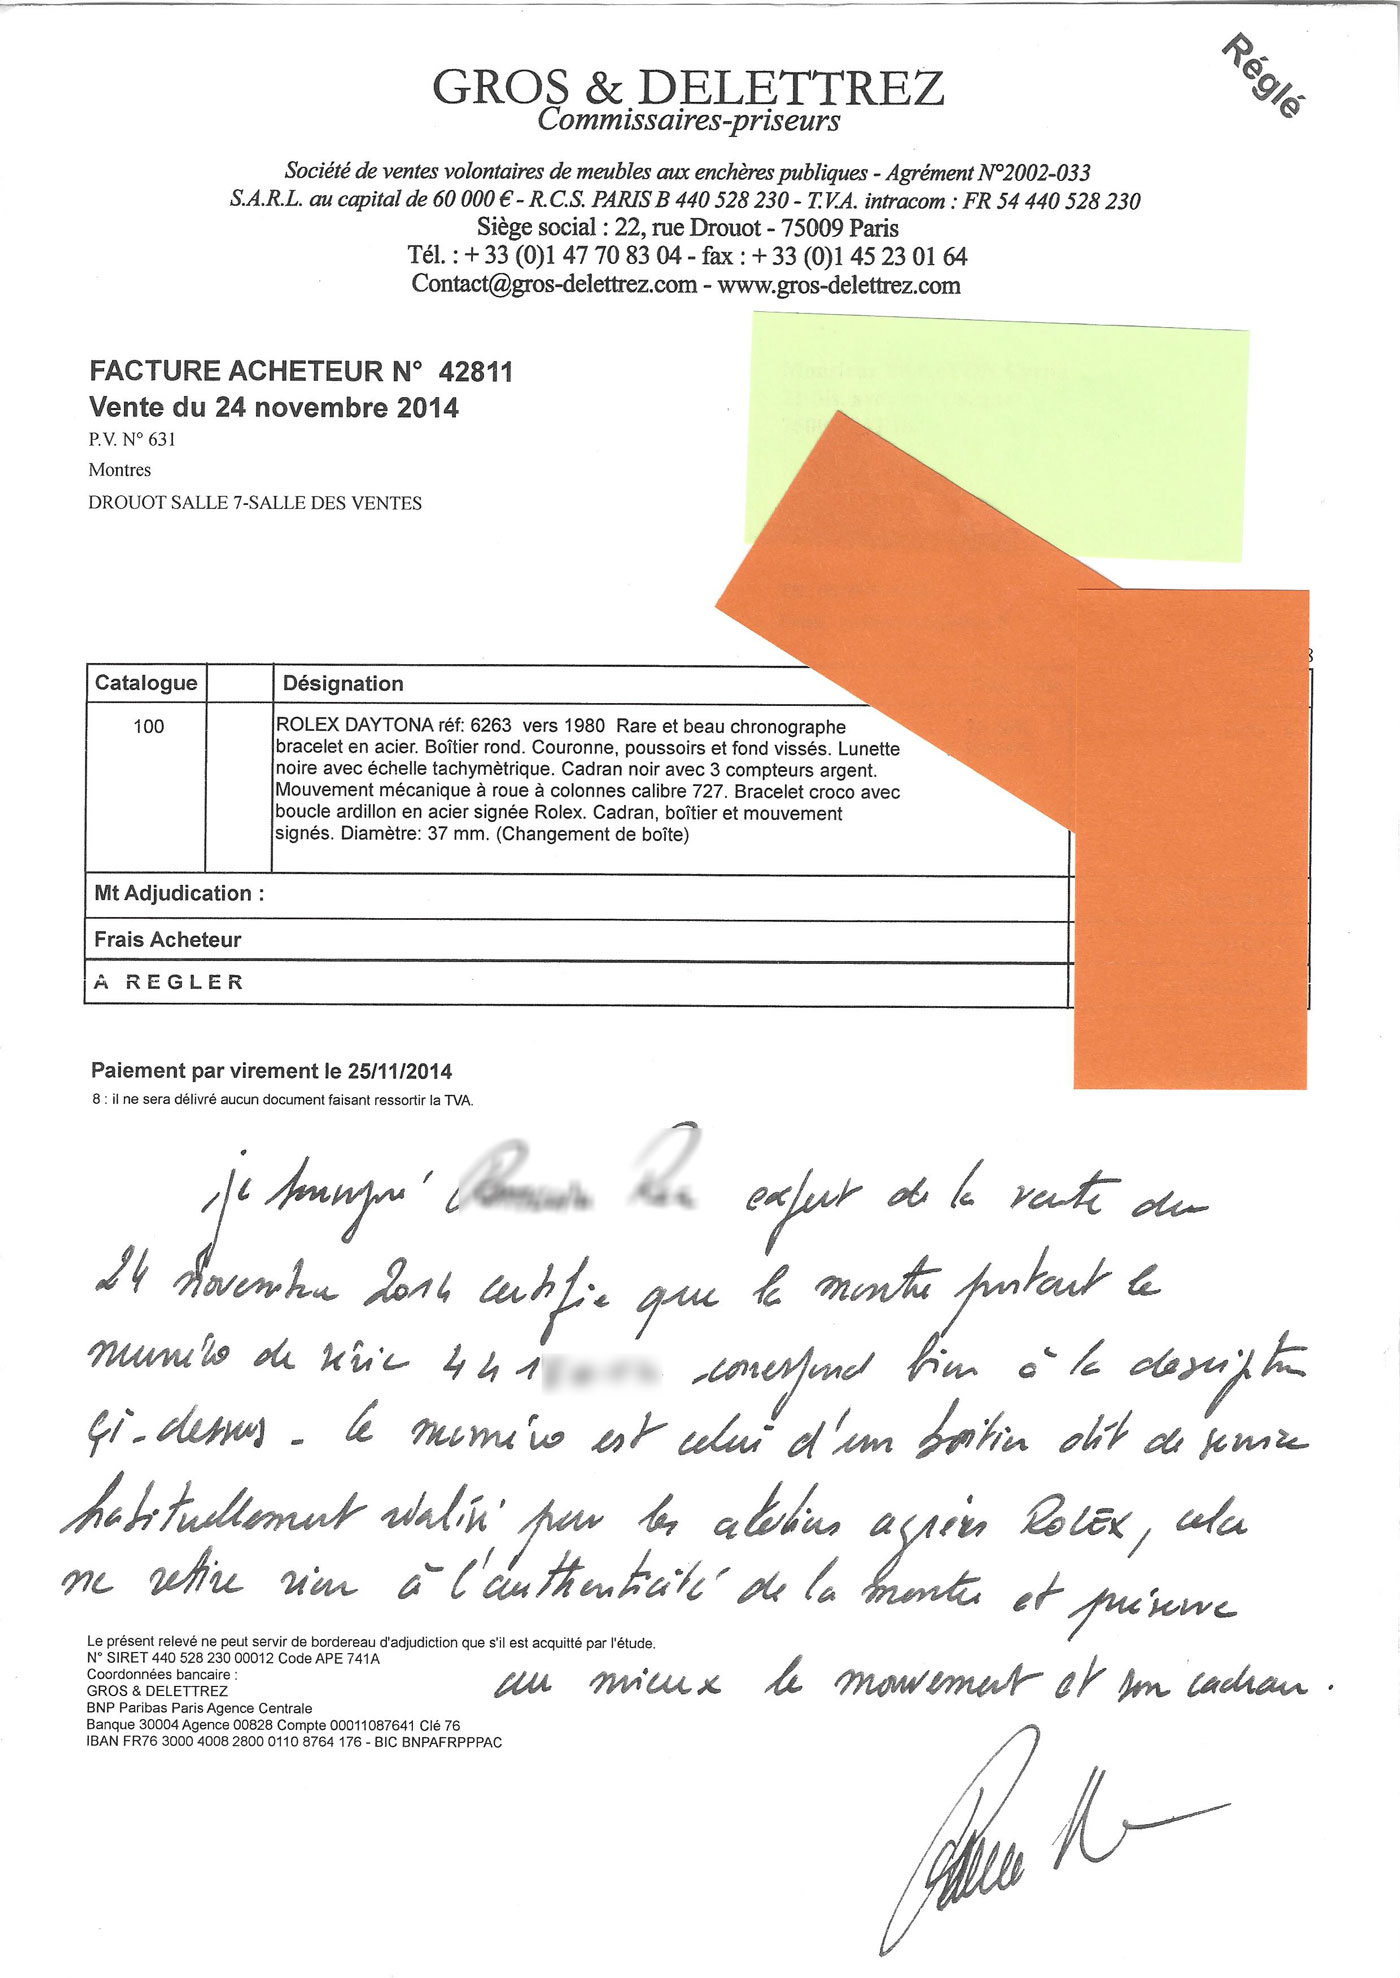 Réglé
GROS & DELETTREZ
Commissaires-priseurs
Société de ventes volontaires de meubles aux enchères publiques - Agrément N°2002-033
S.A.R.L. au capital de 60 000 € - R.C.S. PARIS B 440 528 230 - T.V.A. intracom : FR 54 440 528 230
Siège social : 22, rue Drouot - 75009 Paris
Tél. : + 33 (0)1 47 70 83 04 - fax : + 33 (0)1 45 23 01 64
Contact@gros-delettrez.com - www.gros-delettrez.com
FACTURE ACHETEUR N° 42811
Vente du 24 novembre 2014
P.V. N° 631
Montres
DROUOT SALLE 7-SALLE DES VENTES
8
Catalogue Désignation
100 ROLEX DAYTONA réf: 6263 vers 1980 Rare et beau chronographe
bracelet en acier. Boîtier rond. Couronne, poussoirs et fond vissés. Lunette
noire avec échelle tachymètrique. Cadran noir avec 3 compteurs argent.
Mouvement mécanique à roue à colonnes calibre 727. Bracelet croco avec
boucle ardillon en acier signée Rolex. Cadran, boîtier et mouvement
signés. Diamètre: 37 mm. (Changement de boîte)
Mt Adjudication :
Frais Acheteur
A REGLER
Paiement par virement le 25/11/2014
8 : il ne sera délivré aucun document faisant ressortir la TVA.
je soussigné expert de la vente du
24 novembre 2014 certifie que la montre portant le
numéro de série 441 correspond bien à la description
çi-dessus - le numéro est celui d'un boitier dit de service
habituellement réalisé par les ateliers agréés ROLEX, cela
ne retire rien à l'authenticité de la montre et préserve
au mieux le mouvement et son cadran.
Le présent relevé ne peut servir de bordereau d'adjudiction que s'il est acquitté par l'étude.
N° SIRET 440 528 230 00012 Code APE 741A
Coordonnées bancaire :
GROS & DELETTREZ
BNP Paribas Paris Agence Centrale
Banque 30004 Agence 00828 Compte 00011087641 Clé 76
IBAN FR76 3000 4008 2800 0110 8764 176 - BIC BNPAFRPPPAC